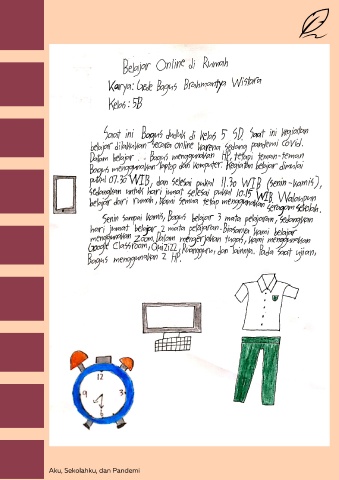 Belajar Online di Rumah
Karya: Gede Bagus Brahmantya Wistara
Kelas: 5B
Saat ini Bagus duduk di kelas 5 SD. Saat ini kegiatan
belajar dilakukan secara online karena sedang pandemi covid.
Dalam belajar , Bagus menggunakan HP, tetapi teman-teman
Bagus menggunakan laptop dan komputer. Kegiatan belajar dimulai
pukul 07.30 WIB, dan selesai pukul 11.30 WIB (senin-kamis),
sedangkan untuk hari jumat selesai pukul 10.15 WIB. Walaupun
belajar dari rumah, kami semua tetap menggunakan seragam sekolah.
Senin sampai kamis, Bagus belajar 3 mata pelajaran, sedangkan
hari jumat belajar 2 mata pelajaran. Biasanya kami belajar
menggunakan Zoom. Dalam mengerjakan tugas, kami menggunakan
Google Classroom, Quizizz, Ruangguru, dan lainnya. Pada saat ujian,
Bagus menggunakan 2 HP.
12
3
6
9
Aku, Sekolahku, dan Pandemi